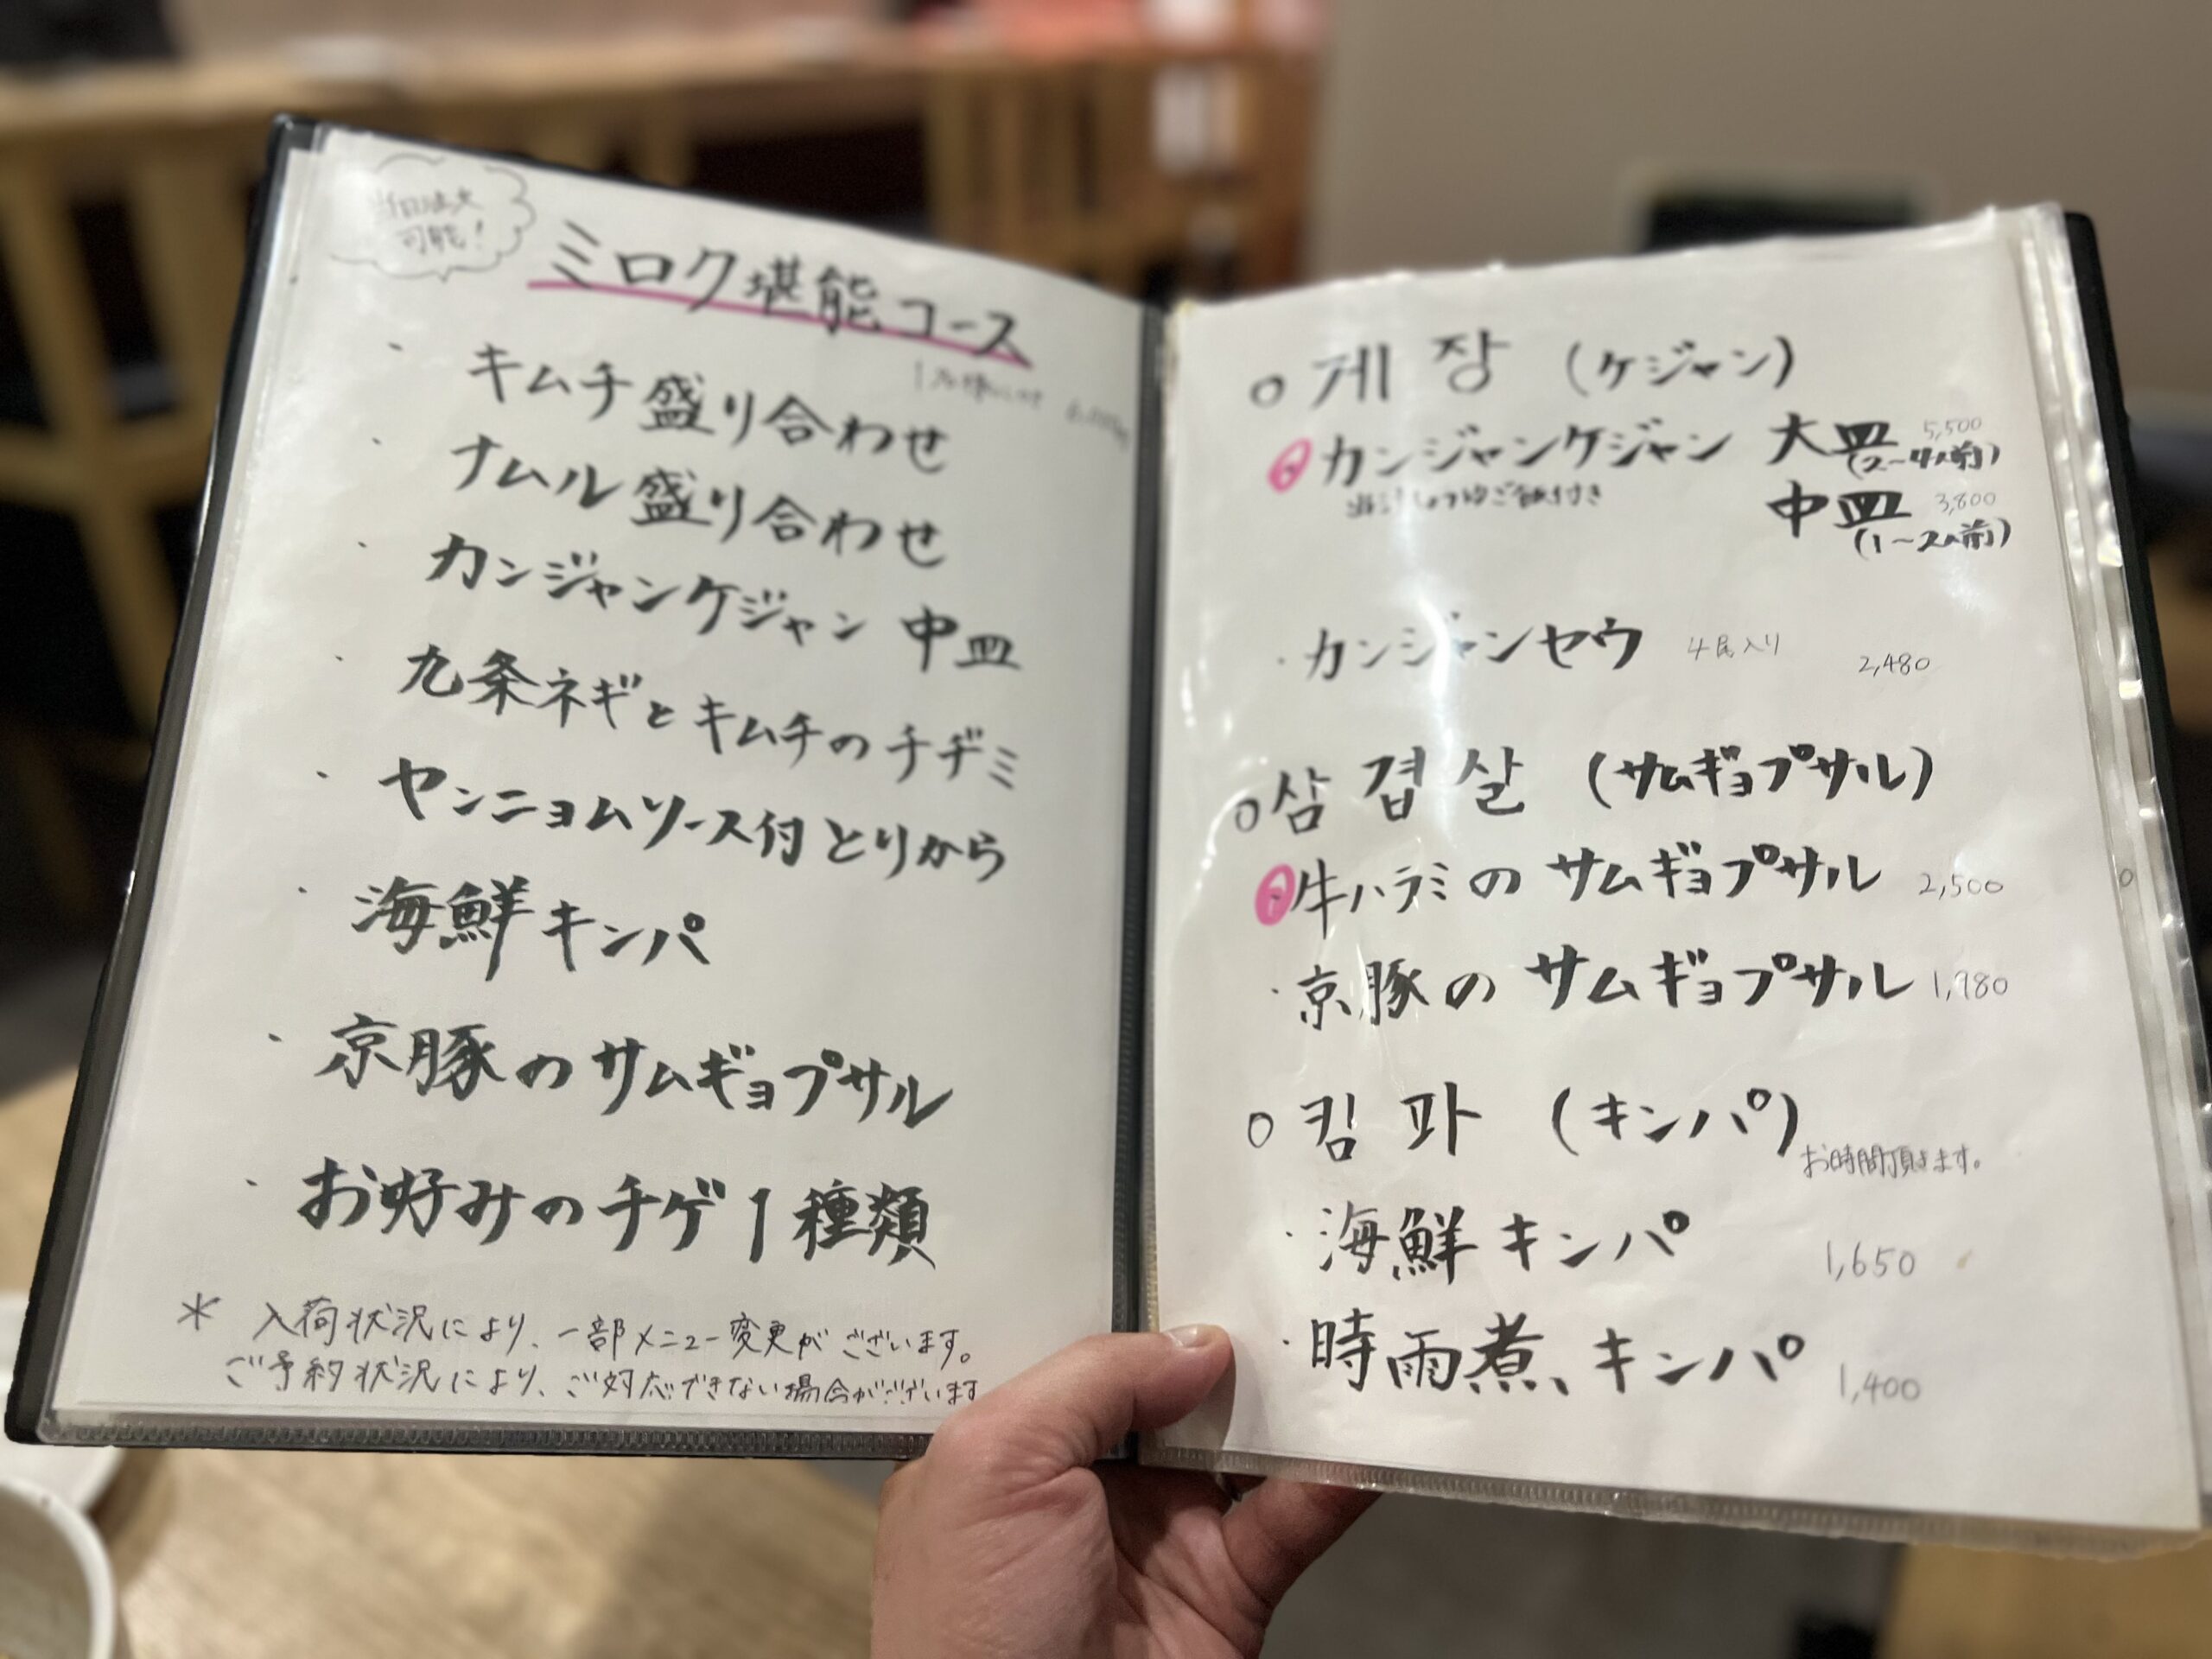 当日注文
可能！
ミロク堪能コース
・キムチ盛り合わせ
・ナムル盛り合わせ
・カンジャンケジャン 中皿
・九条ネギとキムチのチヂミ
・ヤンニョムソース付とりから
・海鮮キンパ
・京豚のサムギョプサル
・お好みのチゲ1種類
* 入荷状況により、一部メニュー変更がございます。
ご予約状況により、ご対応できない場合がございます
○ 게장 (ケジャン)
カンジャンケジャン 大皿 5,500
(2〜4人前)
ご飯付き
中皿 3,800
(1〜2人前)
・カンジャンセウ 4尾入り 2,480
○ 삼겹살 (サムギョプサル)
牛ハラミのサムギョプサル 2,500
・京豚のサムギョプサル 1,980
○ 킴파 (キンパ)
お時間頂きます。
・海鮮キンパ 1,650
・時雨煮、キンパ 1,400